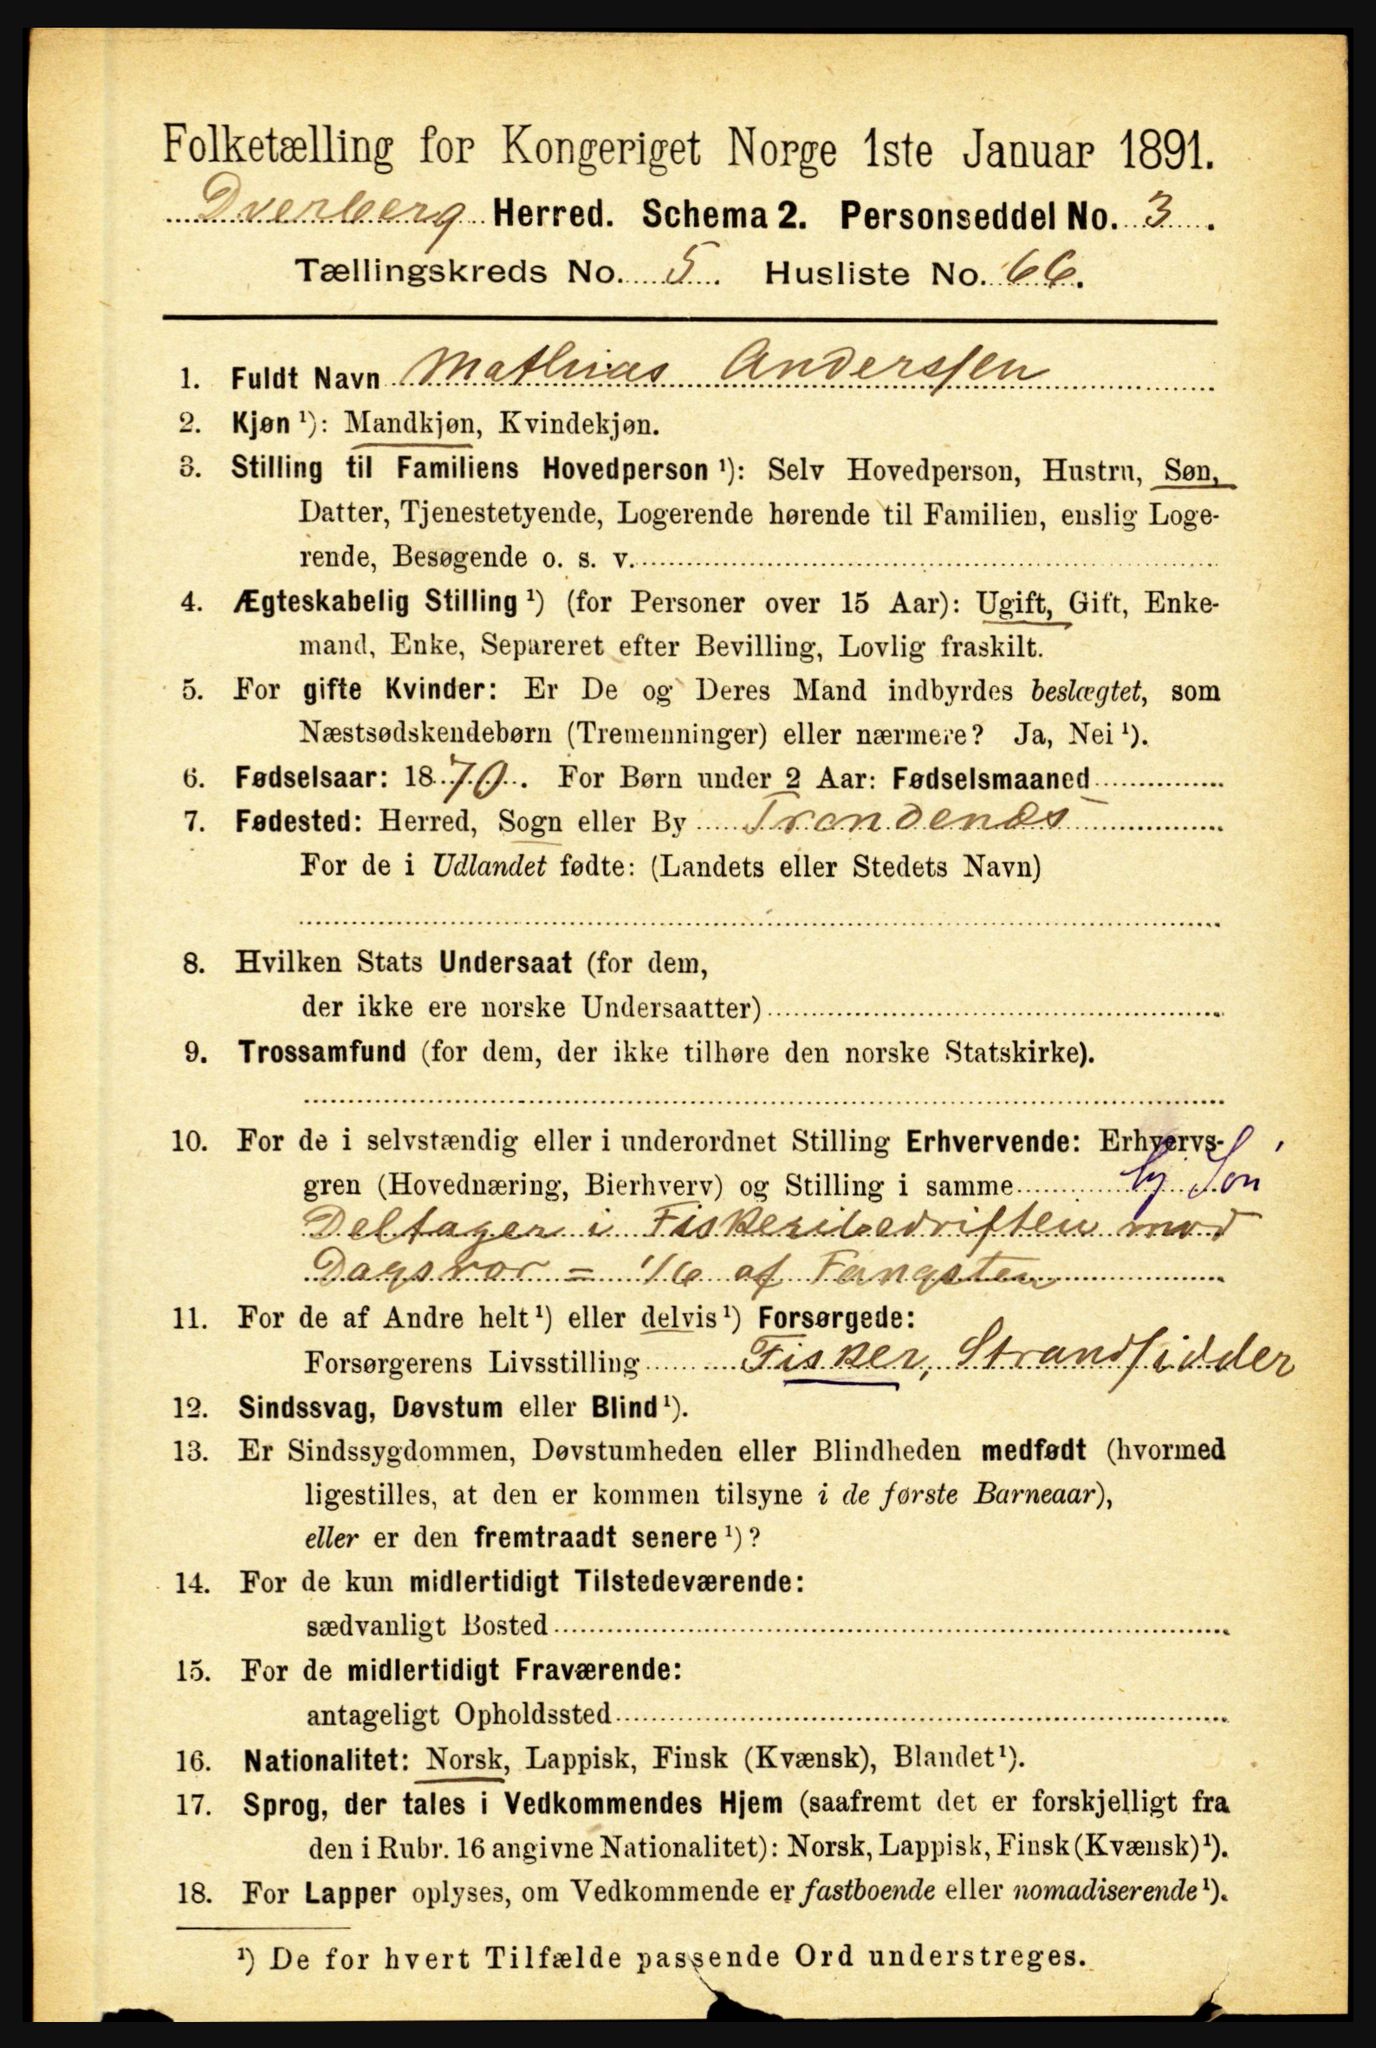 Folketælling for Kongeriget Norge 1ste Januar 1891.
Dverberg Herred. Schema 2. Personseddel No. 3.
Tællingskreds No. 5. Husliste No. 66.
1. Fuldt Navn Mathias Anderssen
2. Kjøn ¹): Mandkjøn, Kvindekjøn.
3. Stilling til Familiens Hovedperson ¹): Selv Hovedperson, Hustru, Søn,
Datter, Tjenestetyende, Logerende hørende til Familien, enslig Loge-
rende, Besøgende o. s. v.
4. Ægteskabelig Stilling ¹) (for Personer over 15 Aar): Ugift, Gift, Enke-
mand, Enke, Separeret efter Bevilling, Lovlig fraskilt.
5. For gifte Kvinder: Er De og Deres Mand indbyrdes beslægtet, som
Næstsødskendebørn (Tremenninger) eller nærmere? Ja, Nei ¹).
6. Fødselsaar: 1870. For Børn under 2 Aar: Fødselsmaaned
7. Fødested: Herred, Sogn eller By Trondenes
For de i Udlandet fødte: (Landets eller Stedets Navn)
8. Hvilken Stats Undersaat (for dem,
der ikke ere norske Undersaatter)
9. Trossamfund (for dem, der ikke tilhøre den norske Statskirke).
10. For de i selvstændig eller i underordnet Stilling Erhvervende: Erhvervs-
gren (Hovednæring, Bierhverv) og Stilling i samme hj. Søn
Deltager i Fiskeribedriften mod
Dagsror = 1/6 af Fangsten
11. For de af Andre helt ¹) eller delvis ¹) Forsørgede:
Forsørgerens Livsstilling Fisker, Strandsidder
12. Sindssvag, Døvstum eller Blind ¹).
13. Er Sindssygdommen, Døvstumheden eller Blindheden medfødt (hvormed
ligestilles, at den er kommen tilsyne i de første Barneaar),
eller er den fremtraadt senere ¹)?
14. For de kun midlertidigt Tilstedeværende:
sædvanligt Bosted
15. For de midlertidigt Fraværende:
antageligt Opholdssted
16. Nationalitet: Norsk, Lappisk, Finsk (Kvænsk), Blandet ¹).
17. Sprog, der tales i Vedkommendes Hjem (saafremt det er forskjelligt fra
den i Rubr. 16 angivne Nationalitet): Norsk, Lappisk, Finsk (Kvænsk) ¹).
18. For Lapper oplyses, om Vedkommende er fastboende eller nomadiserende ¹).
¹) De for hvert Tilfælde passende Ord understreges.